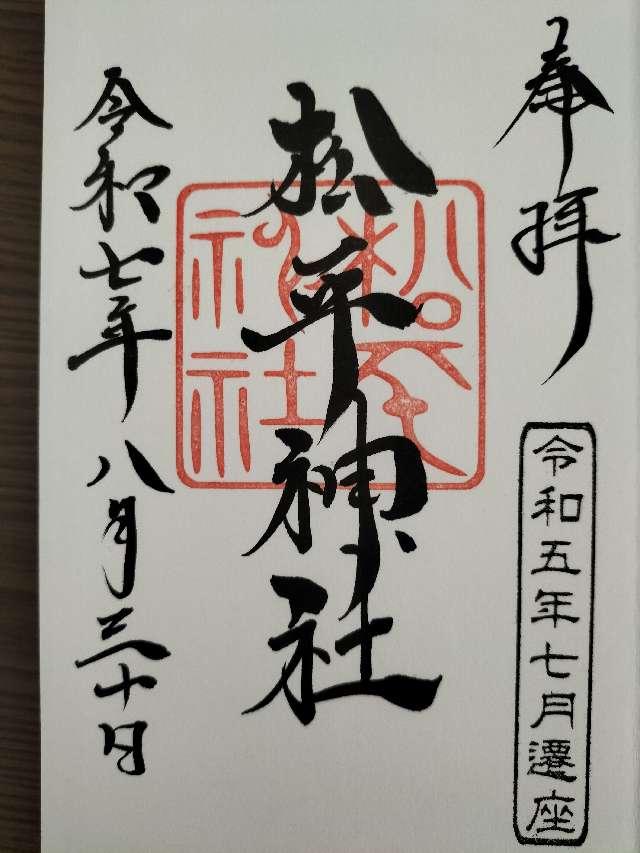 奉拝
令和五年七月遷座
松平神社
令和七年八月三十日